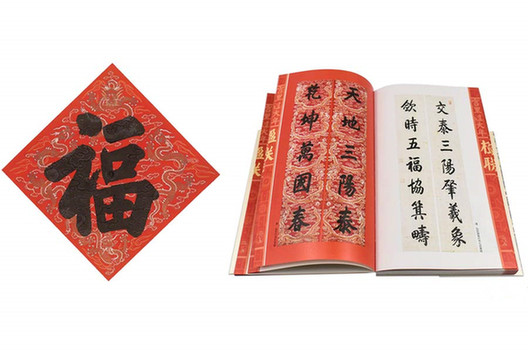 福
天地三陽泰
乾坤萬國春
交泰三陽肇羲象
斂時五福協箕疇
楹联